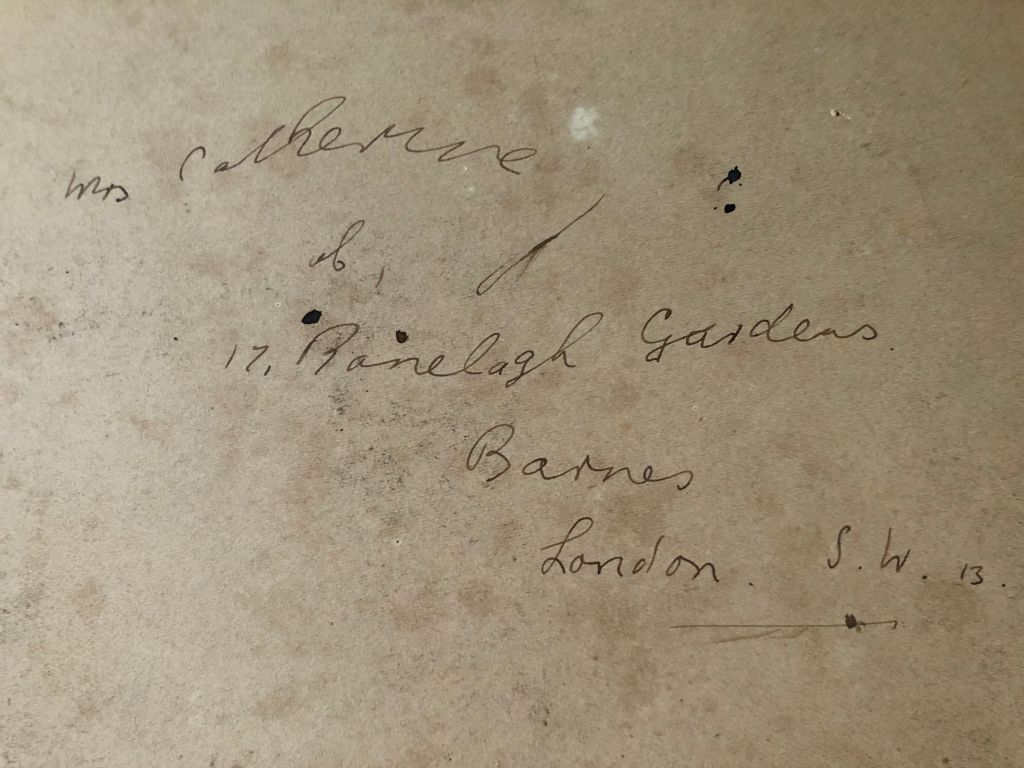 Mrs Catherine
17, Ranelagh Gardens.
Barnes
London. S.W. 13.